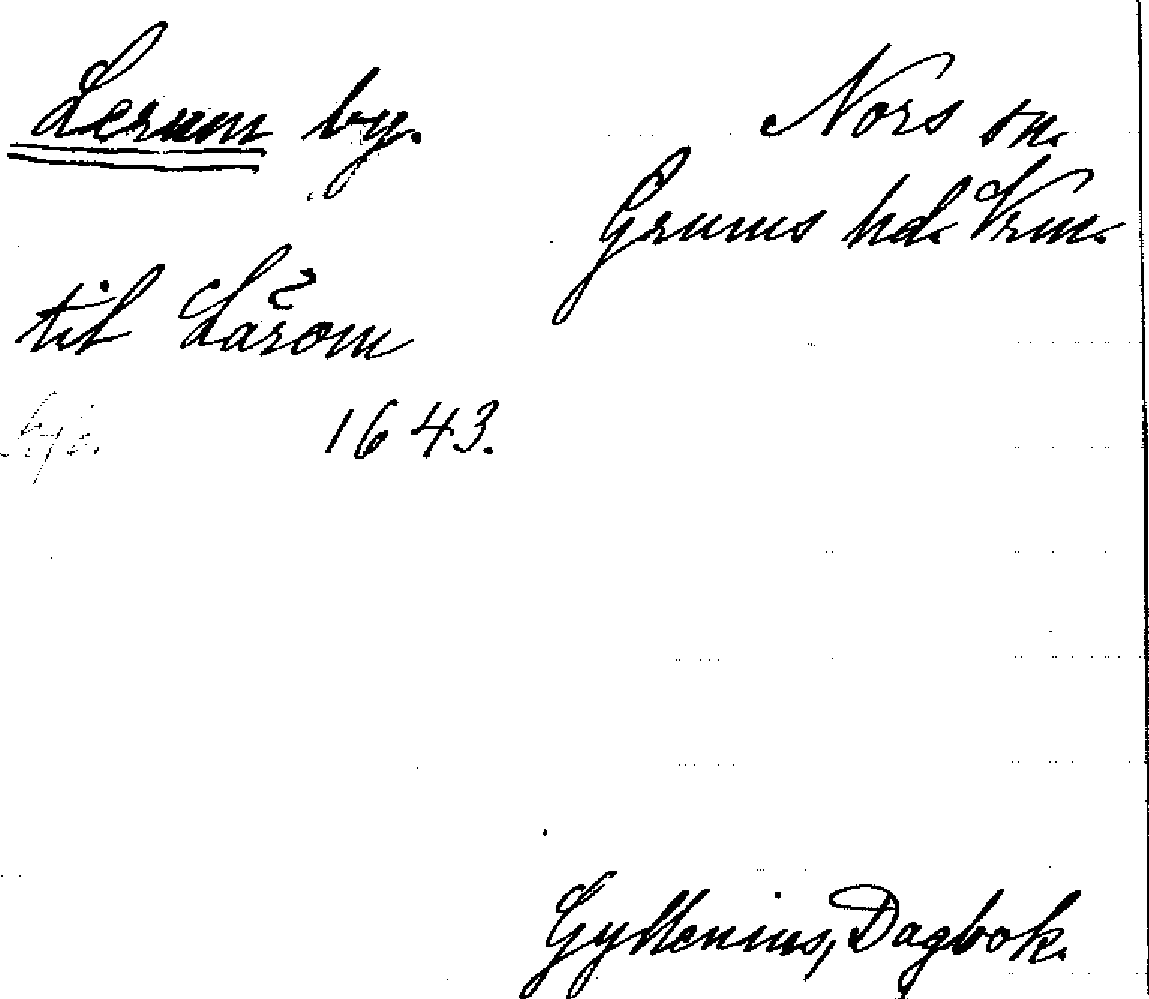 Lerum by.
Nors sn.
Grums hd. Vrm.
til Lårom
1643.
Gyllenius, Dagbok.